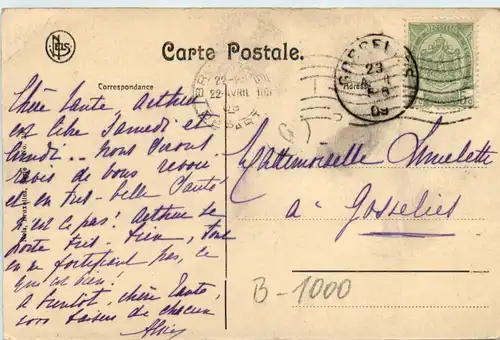 Nels
Carte Postale.
Correspondance
Adresse
GOSSELIES
23
09
22-AVRIL
Chère tante Arthur
est libre Samedi et
lundi... nous serons
ravis de vous revoir
et en très-belle santé
n'est ce pas! Arthur se
porte très-bien, tout
en ne fortifiant pas, ce
qui est bien!
A bientôt, chère tante,
bons baisers de chacun
Mademoiselle
à Gosselies
B-1000